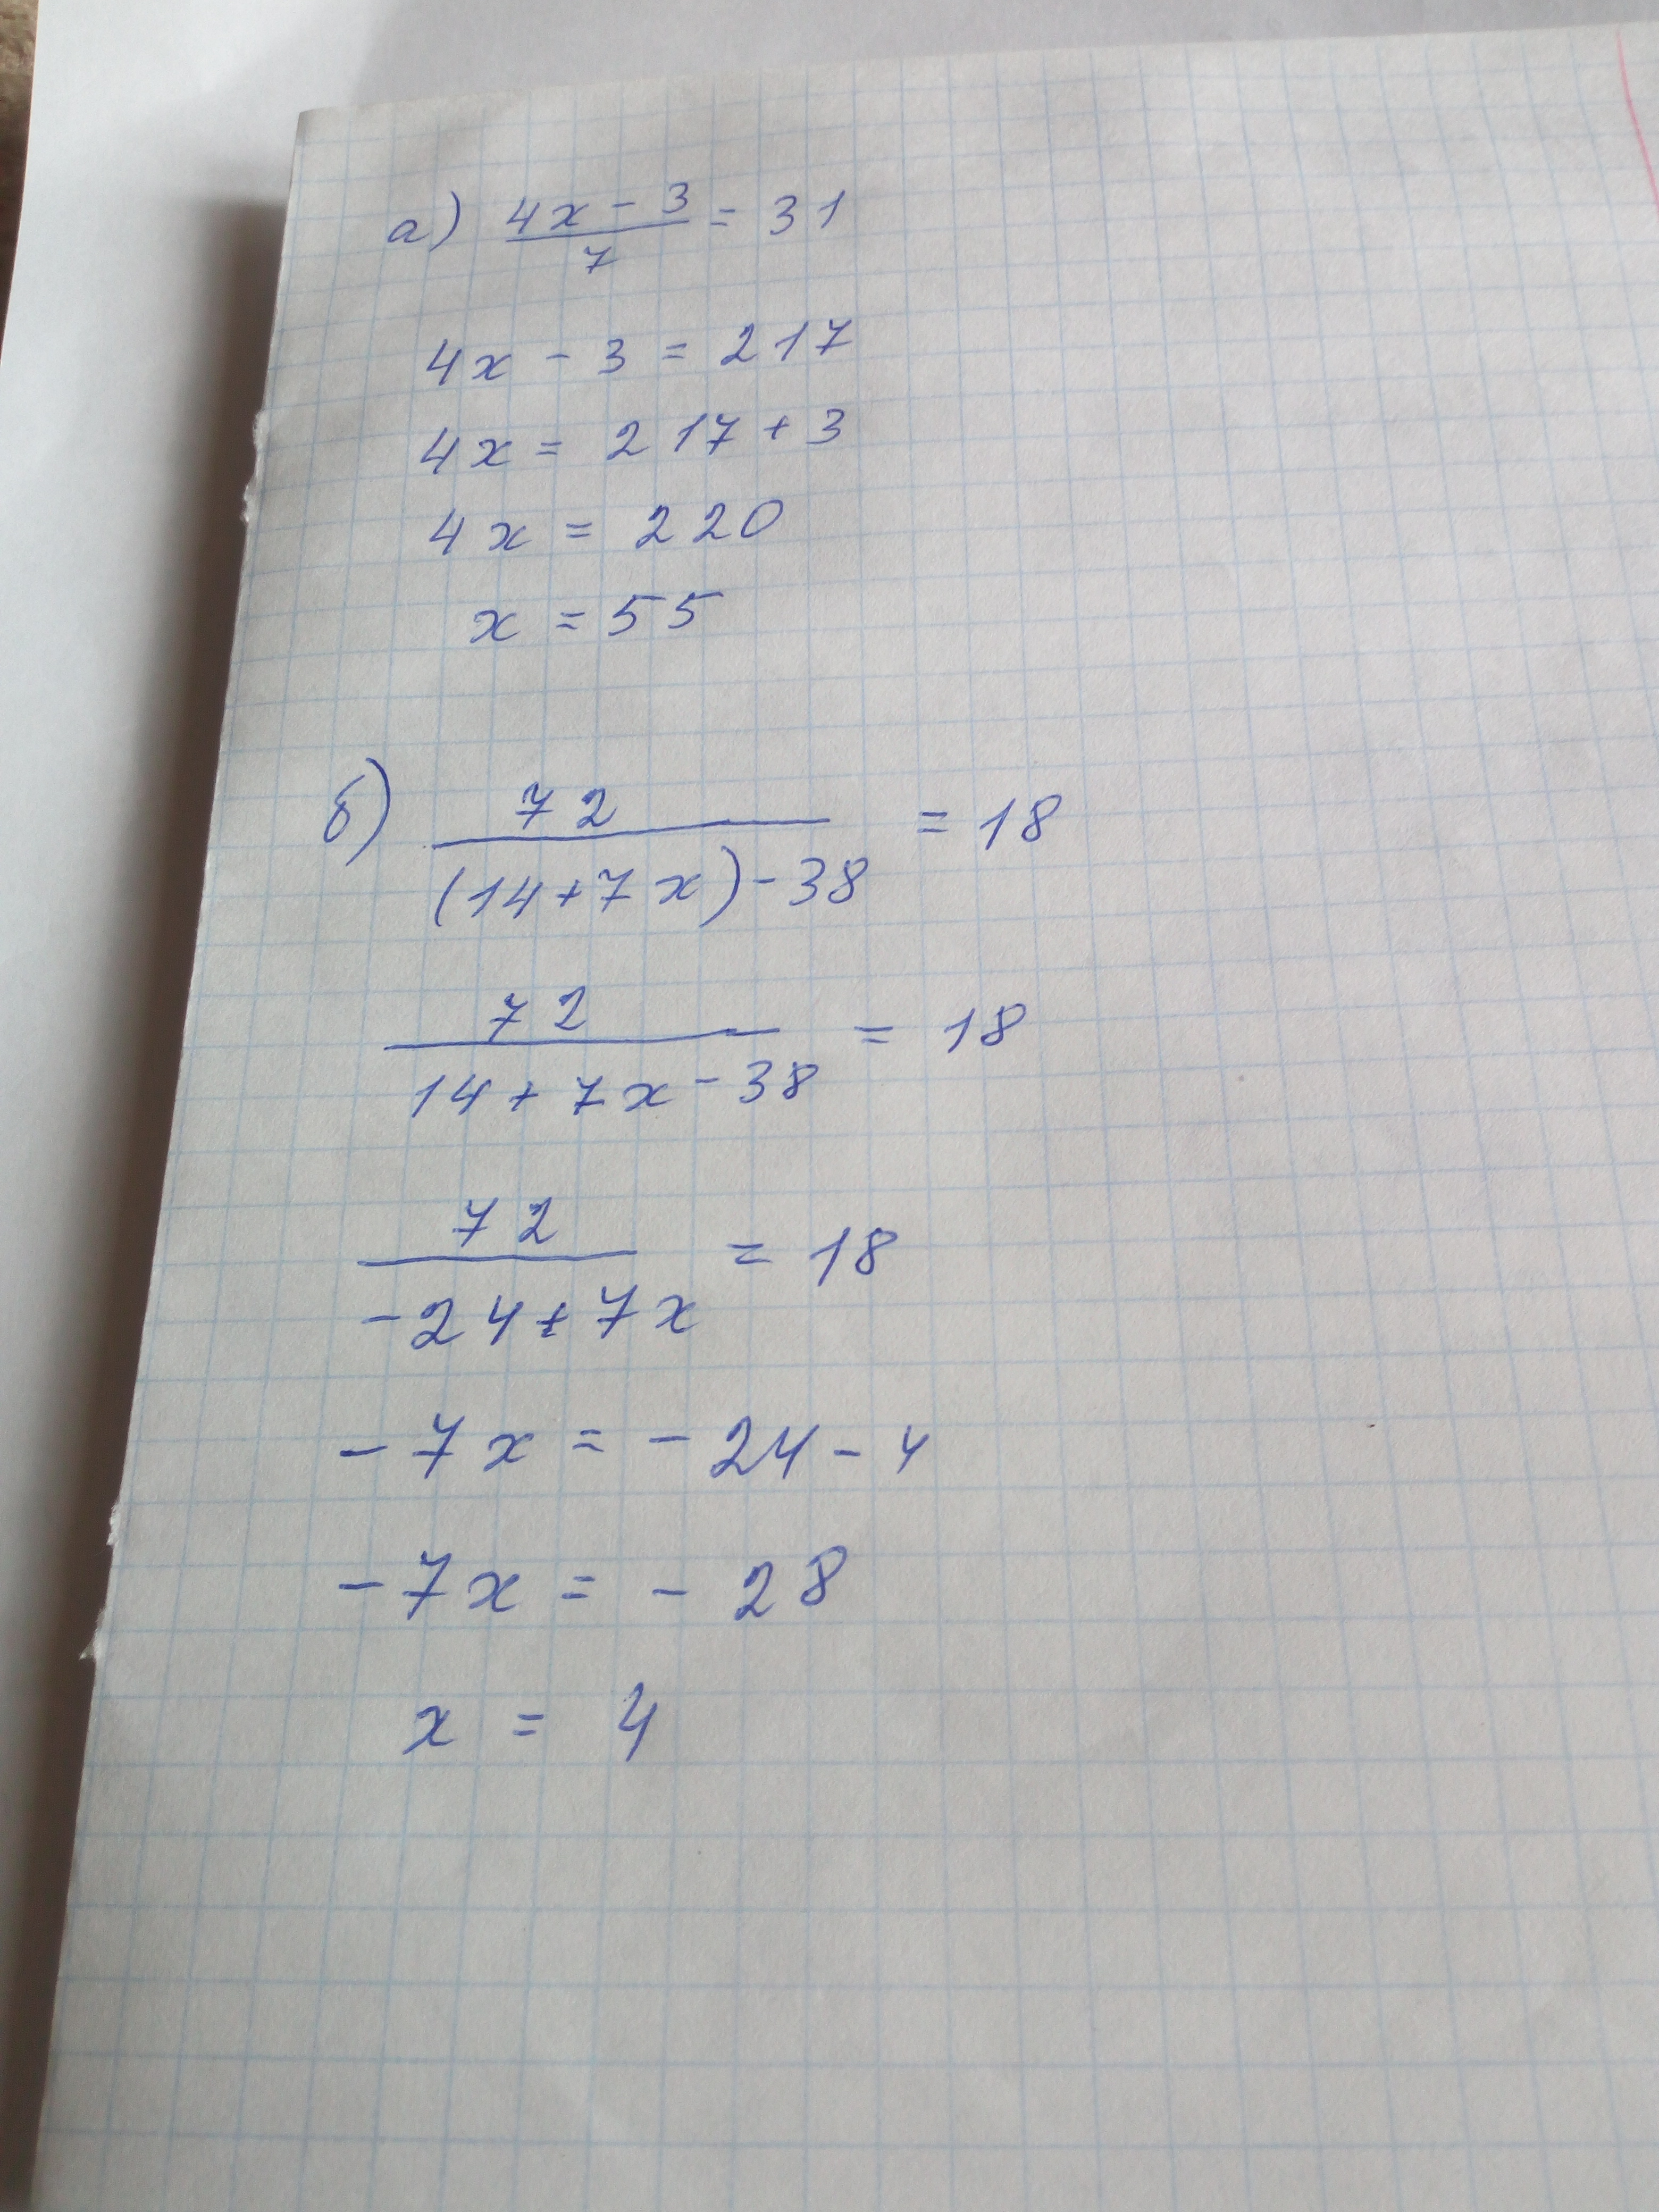 а) (4x - 3)/7 = 31
4x - 3 = 217
4x = 217 + 3
4x = 220
x = 55
б) 72/((14+7x)-38) = 18
72/(14+7x-38) = 18
72/(-24+7x) = 18
-7x = -24-4
-7x = -28
x = 4